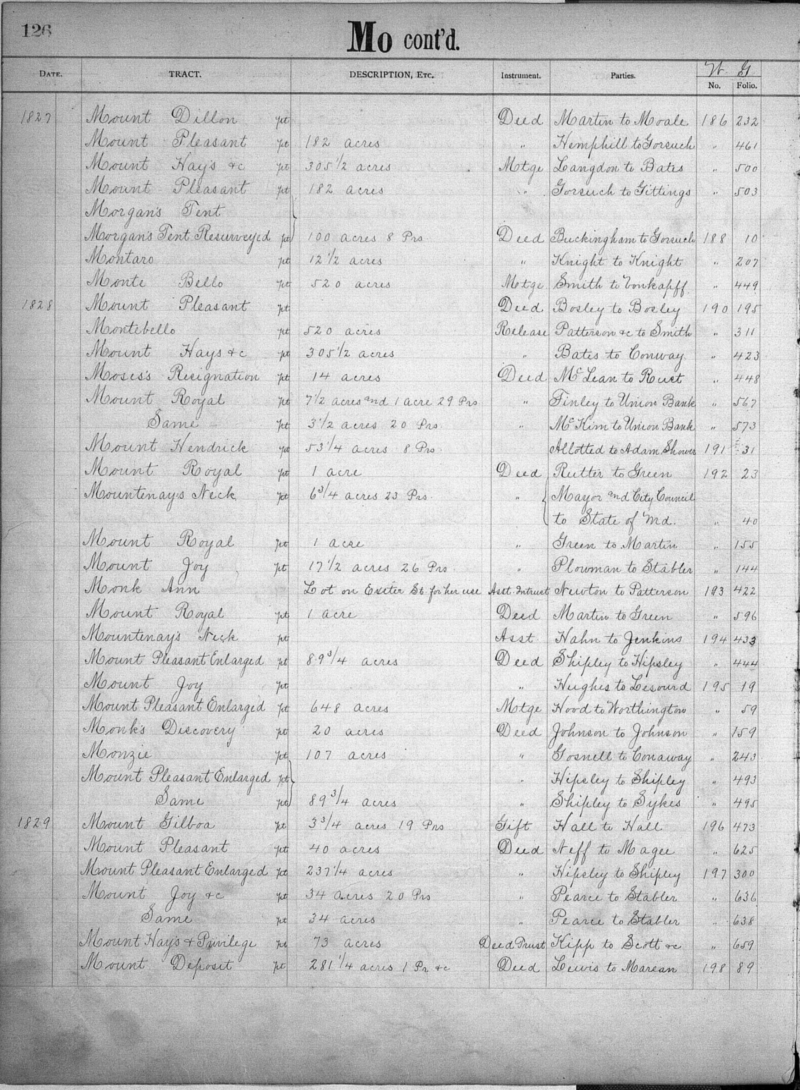 126
Mo cont'd.
W G
DATE. TRACT. DESCRIPTION, ETC. Instrument. Parties. No. Folio.
1827 Mount Dillon pt Deed Martin to Moale 186 232
Mount Pleasant pt 182 acres " Hemphill to Gorsuch " 461
Mount Hay's &c pt 305 1/2 acres Motge Langdon to Bates " 500
Mount Pleasant pt 182 acres " Gorsuch to Gittings " 503
Morgan's Tent
Morgan's Tent Resurveyed pt 100 acres 8 Prs Deed Buckingham to Gorsuch 188 10
Montaro pt 12 1/2 acres " Knight to Knight " 207
Monte Bello pt 520 acres Motge Smith to Vonkapff " 449
1828 Mount Pleasant pt Deed Bosley to Bosley 190 195
Montebello pt 520 acres Release Patterson &c to Smith " 311
Mount Hays &c pt 305 1/2 acres " Bates to Conway " 423
Moses's Resignation pt 14 acres Deed McLean to Rust " 448
Mount Royal pt 7 1/2 acres and 1 acre 29 Prs " Finley to Union Bank " 567
Same pt 3 1/2 acres 20 Prs " McKim to Union Bank " 573
Mount Hendrick pt 53 1/4 acres 8 Prs Allotted to Adam Shower 191 31
Mount Royal pt 1 acre Deed Rutter to Green 192 23
Mountenay's Neck pt 6 3/4 acres 23 Prs " Mayor and City Council
to State of Md. " 40
Mount Royal pt 1 acre " Green to Martin " 155
Mount Joy pt 17 1/2 acres 26 Prs " Plowman to Stabler " 144
Monk Ann Lot on Exeter St for her use Asst Intrust Newton to Patterson 193 422
Mount Royal pt 1 acre Deed Martin to Green " 596
Mountenay's Neck pt Asst Hahn to Jenkins 194 433
Mount Pleasant Enlarged pt 89 3/4 acres Deed Shipley to Hipsley " 444
Mount Joy pt " Hughes to Lesourd 195 19
Mount Pleasant Enlarged pt 648 acres Motge Hood to Worthington " 59
Monk's Discovery pt 20 acres Deed Johnson to Johnson " 159
Monzie pt 107 acres " Gosnell to Conaway " 243
Mount Pleasant Enlarged pt " Hipsley to Shipley " 493
Same pt 89 3/4 acres " Shipley to Sykes " 495
1829 Mount Gilboa pt 3 3/4 acres 19 Prs Gift Hall to Hall 196 473
Mount Pleasant pt 40 acres Deed Neff to Magee " 625
Mount Pleasant Enlarged pt 237 1/4 acres " Hipsley to Shipley 197 300
Mount Joy &c pt 34 acres 20 Prs " Pearce to Stabler " 636
Same pt 34 acres " Pearce to Stabler " 638
Mount Hay's & Privilege pt 73 acres Deed Trust Kipp to Scott &c " 659
Mount Deposit pt 281 1/4 acres 1 Pr &c Deed Lewis to Marean 198 89